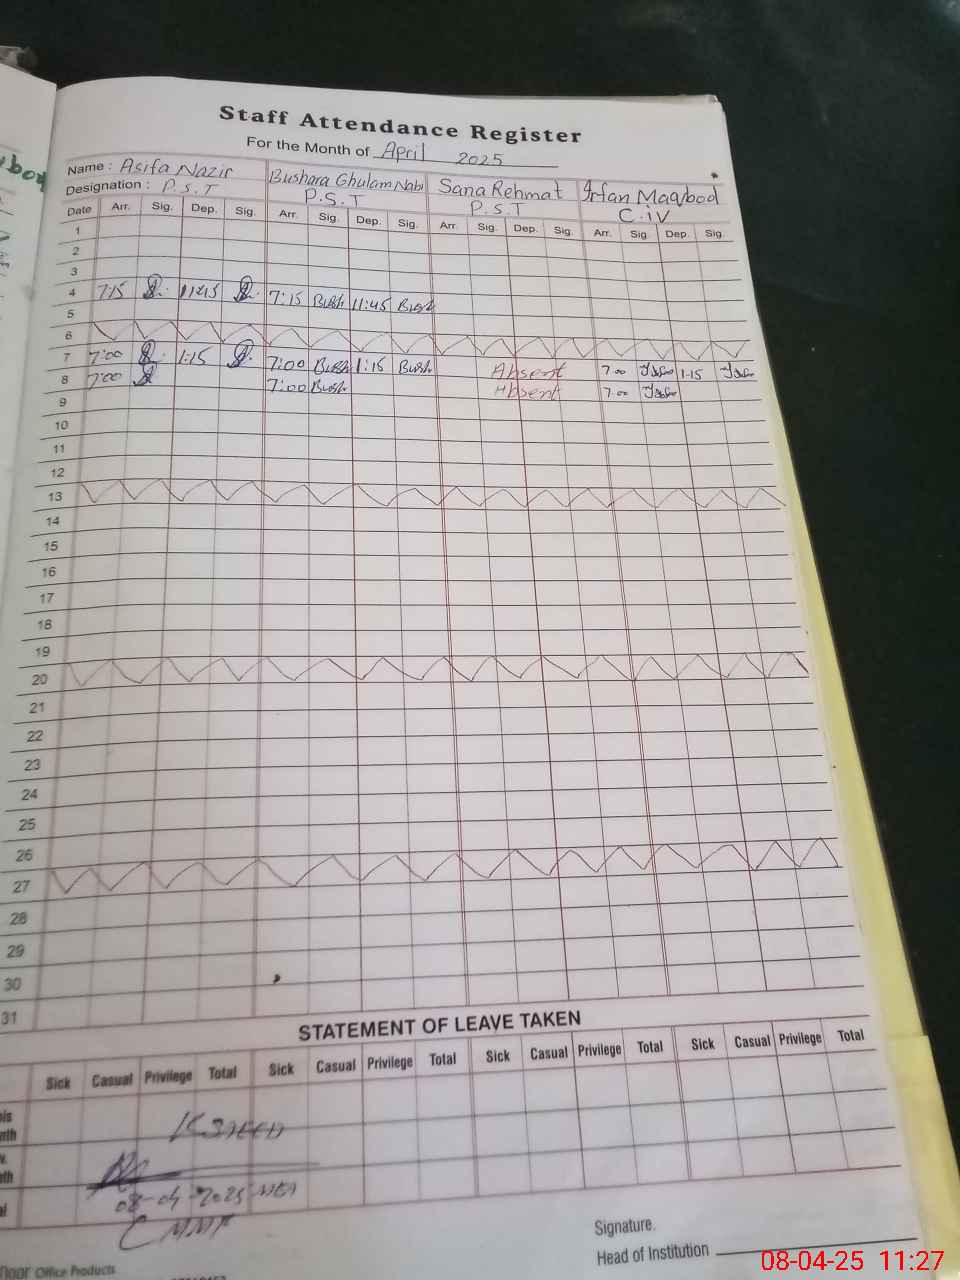 Staff Attendance Register
For the Month of April 2025
Name : Asifa Nazir Bushara Ghulam Nabi Sana Rehmat Irfan Maqbool
Designation : P.S.T P.S.T P.S.T C.iV
Date Arr. Sig. Dep. Sig. Arr. Sig. Dep. Sig. Arr. Sig. Dep. Sig. Arr. Sig. Dep. Sig.
1
2
3
4 7:15 11:45 7:15 Bush 11:45 Bush
5
6
7 7:00 1:15 7:00 Bush 1:15 Bush Absent 7.00 1.15
8 7:00 7:00 Bush Absent 7.00
9
10
11
12
13
14
15
16
17
18
19
20
21
22
23
24
25
26
27
28
29
30
31
STATEMENT OF LEAVE TAKEN
Sick Casual Privilege Total Sick Casual Privilege Total Sick Casual Privilege Total Sick Casual Privilege Total
08-04-2025 MEA
Signature.
Head of Institution
Office Products
08-04-25 11:27